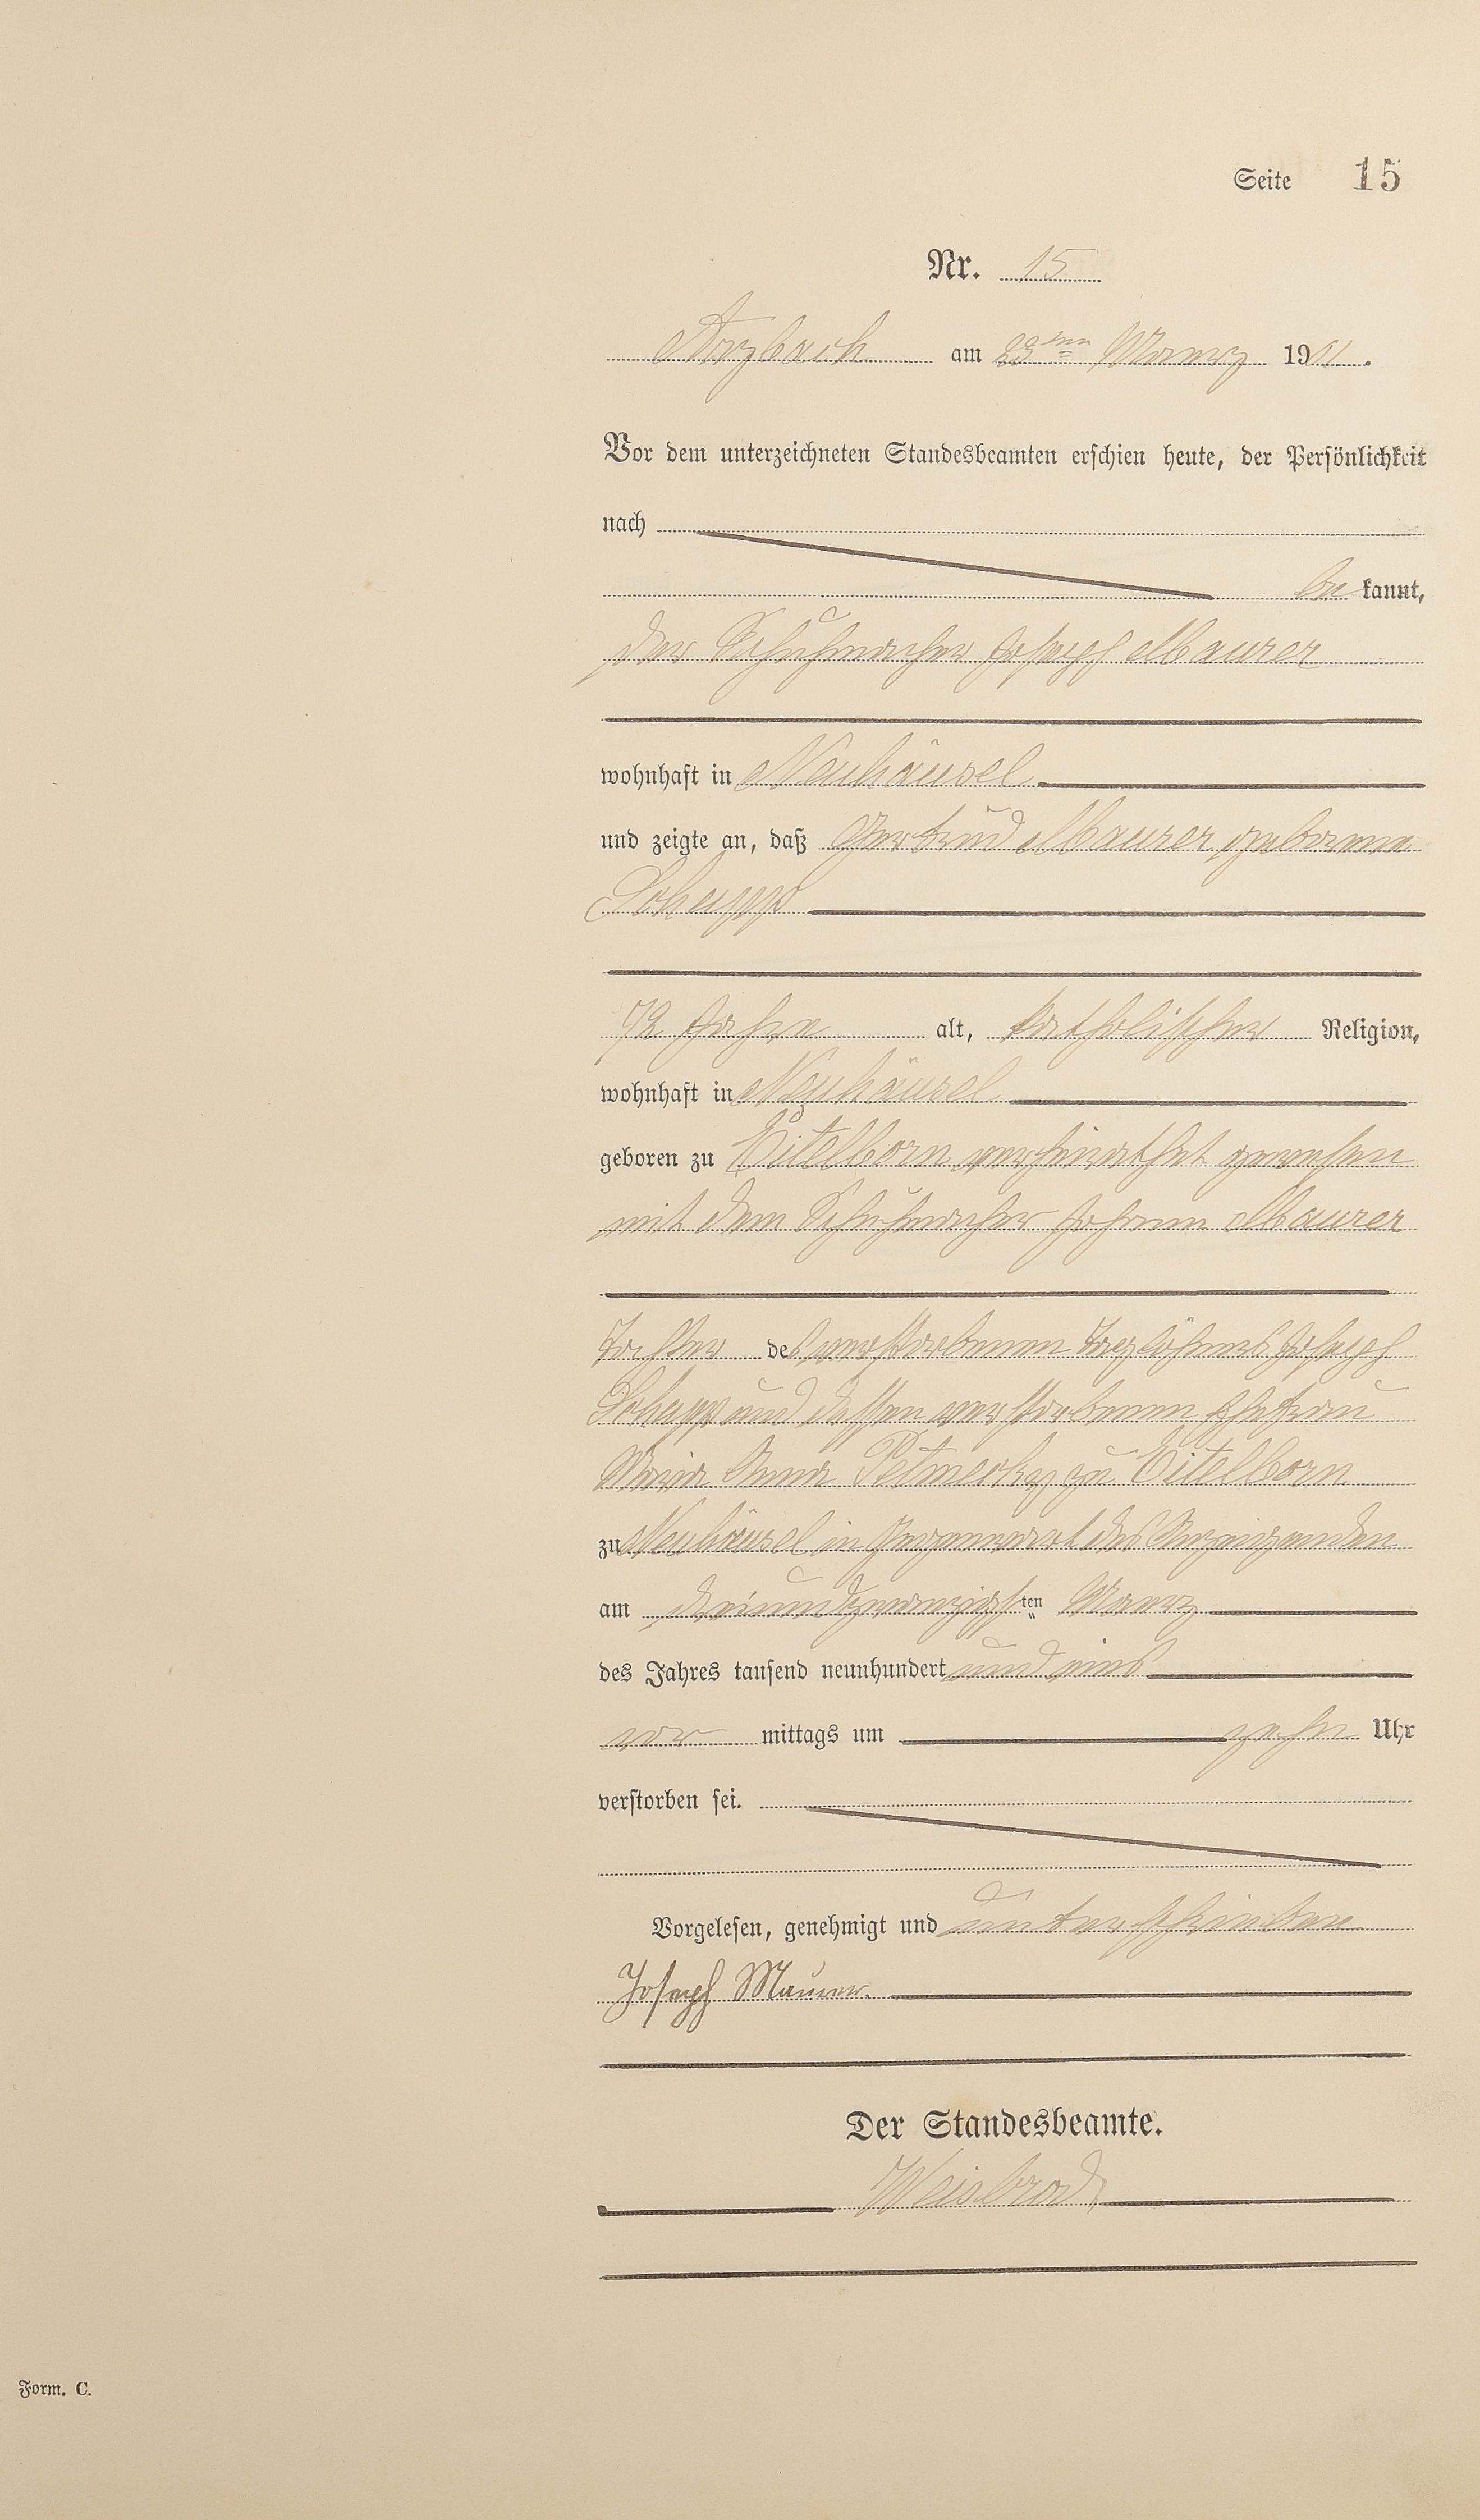 Seite 15
Nr. 15
Arzbach am 23ten Maerz 1901.
Vor dem unterzeichneten Standesbeamten erschien heute, der Persönlichkeit
nach
be kannt,
der Schuhmacher Joseph Maurer
wohnhaft in Neuhäusel
und zeigte an, daß Gertrud Maurer, geborene
Schupp
72 Jahre alt, katholischer Religion,
wohnhaft in Neuhäusel
geboren zu Eitelborn verheirathet gewesen
mit dem Schuhmacher Johann Maurer
Tochter des verstorbenen Taglöhners Joseph
Schupp und dessen verstorbenen Ehefrau
Maria Anna zu Eitelborn
zu Neuhäusel in Gegenwart des Anzeigenden
am dreiundzwanzigsten Maerz
des Jahres tausend neunhundert und eins
vor mittags um zehn Uhr
verstorben sei.
Vorgelesen, genehmigt und unterschrieben
Joseph Maurer.
Der Standesbeamte.
Weisbrod
Form. C.